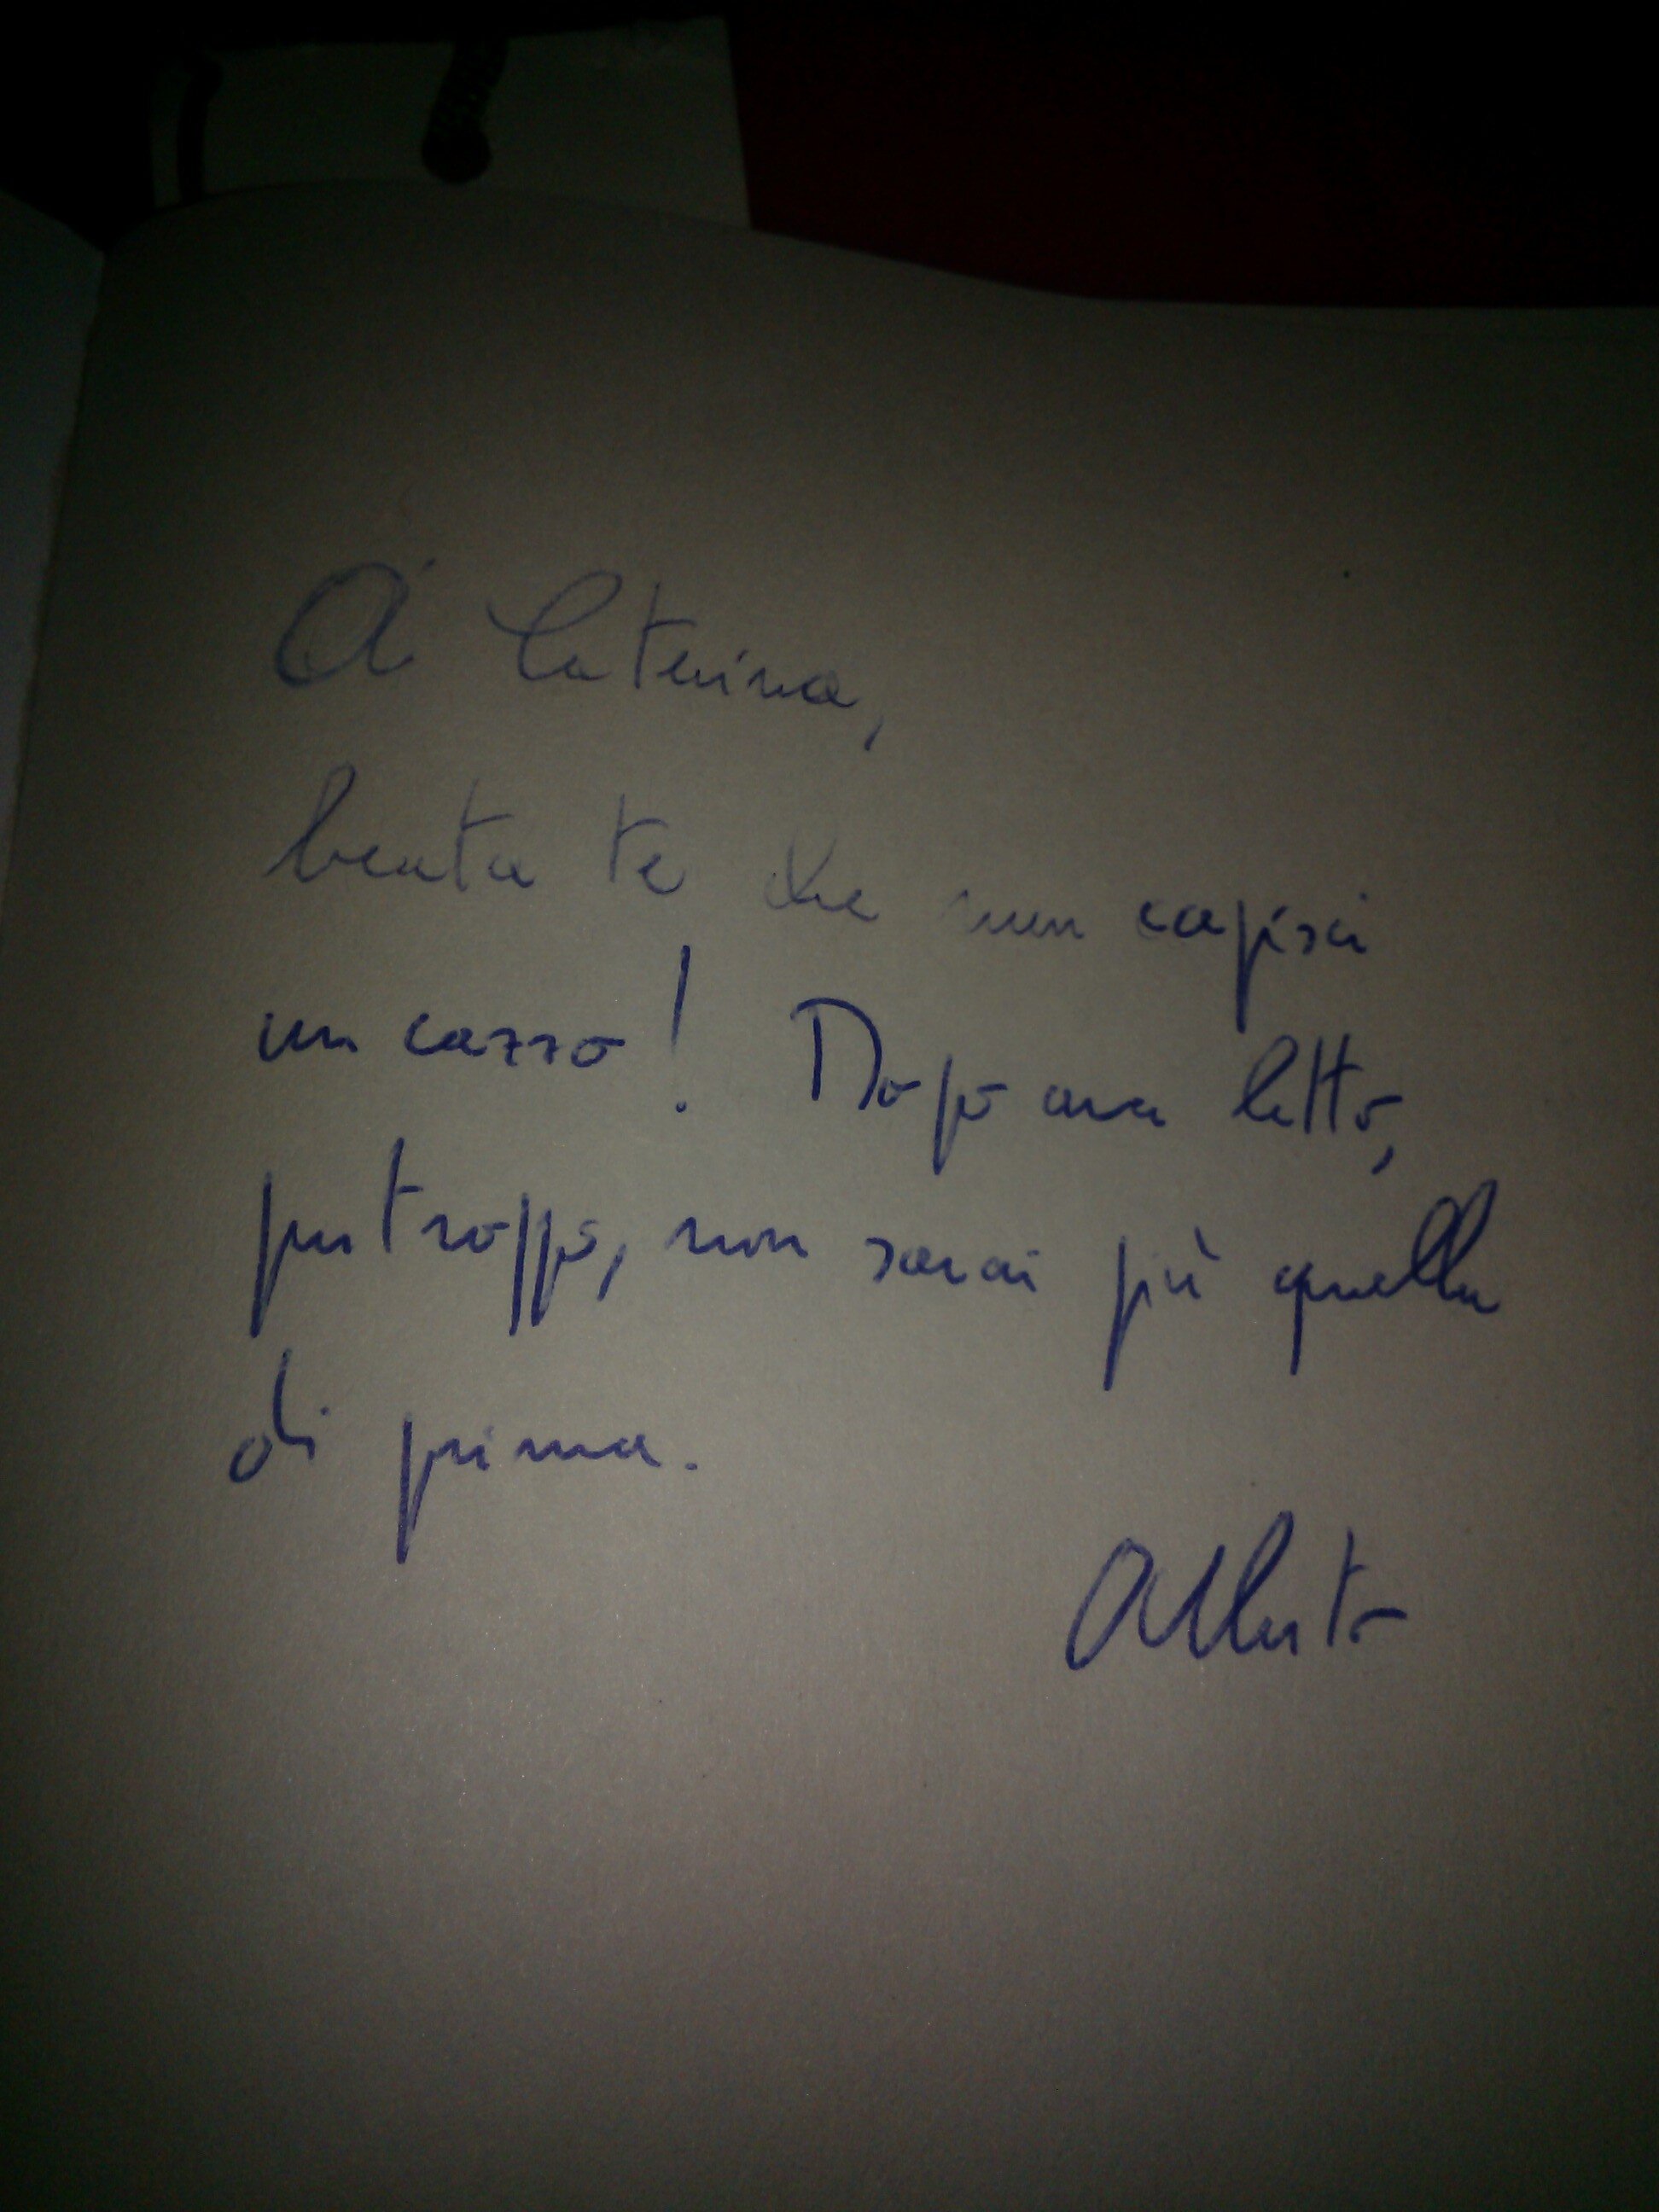 A Caterina,
beata te che non capisci
un cazzo! Dopo aver letto,
purtroppo, non sarai più quella
di prima.
Alberto